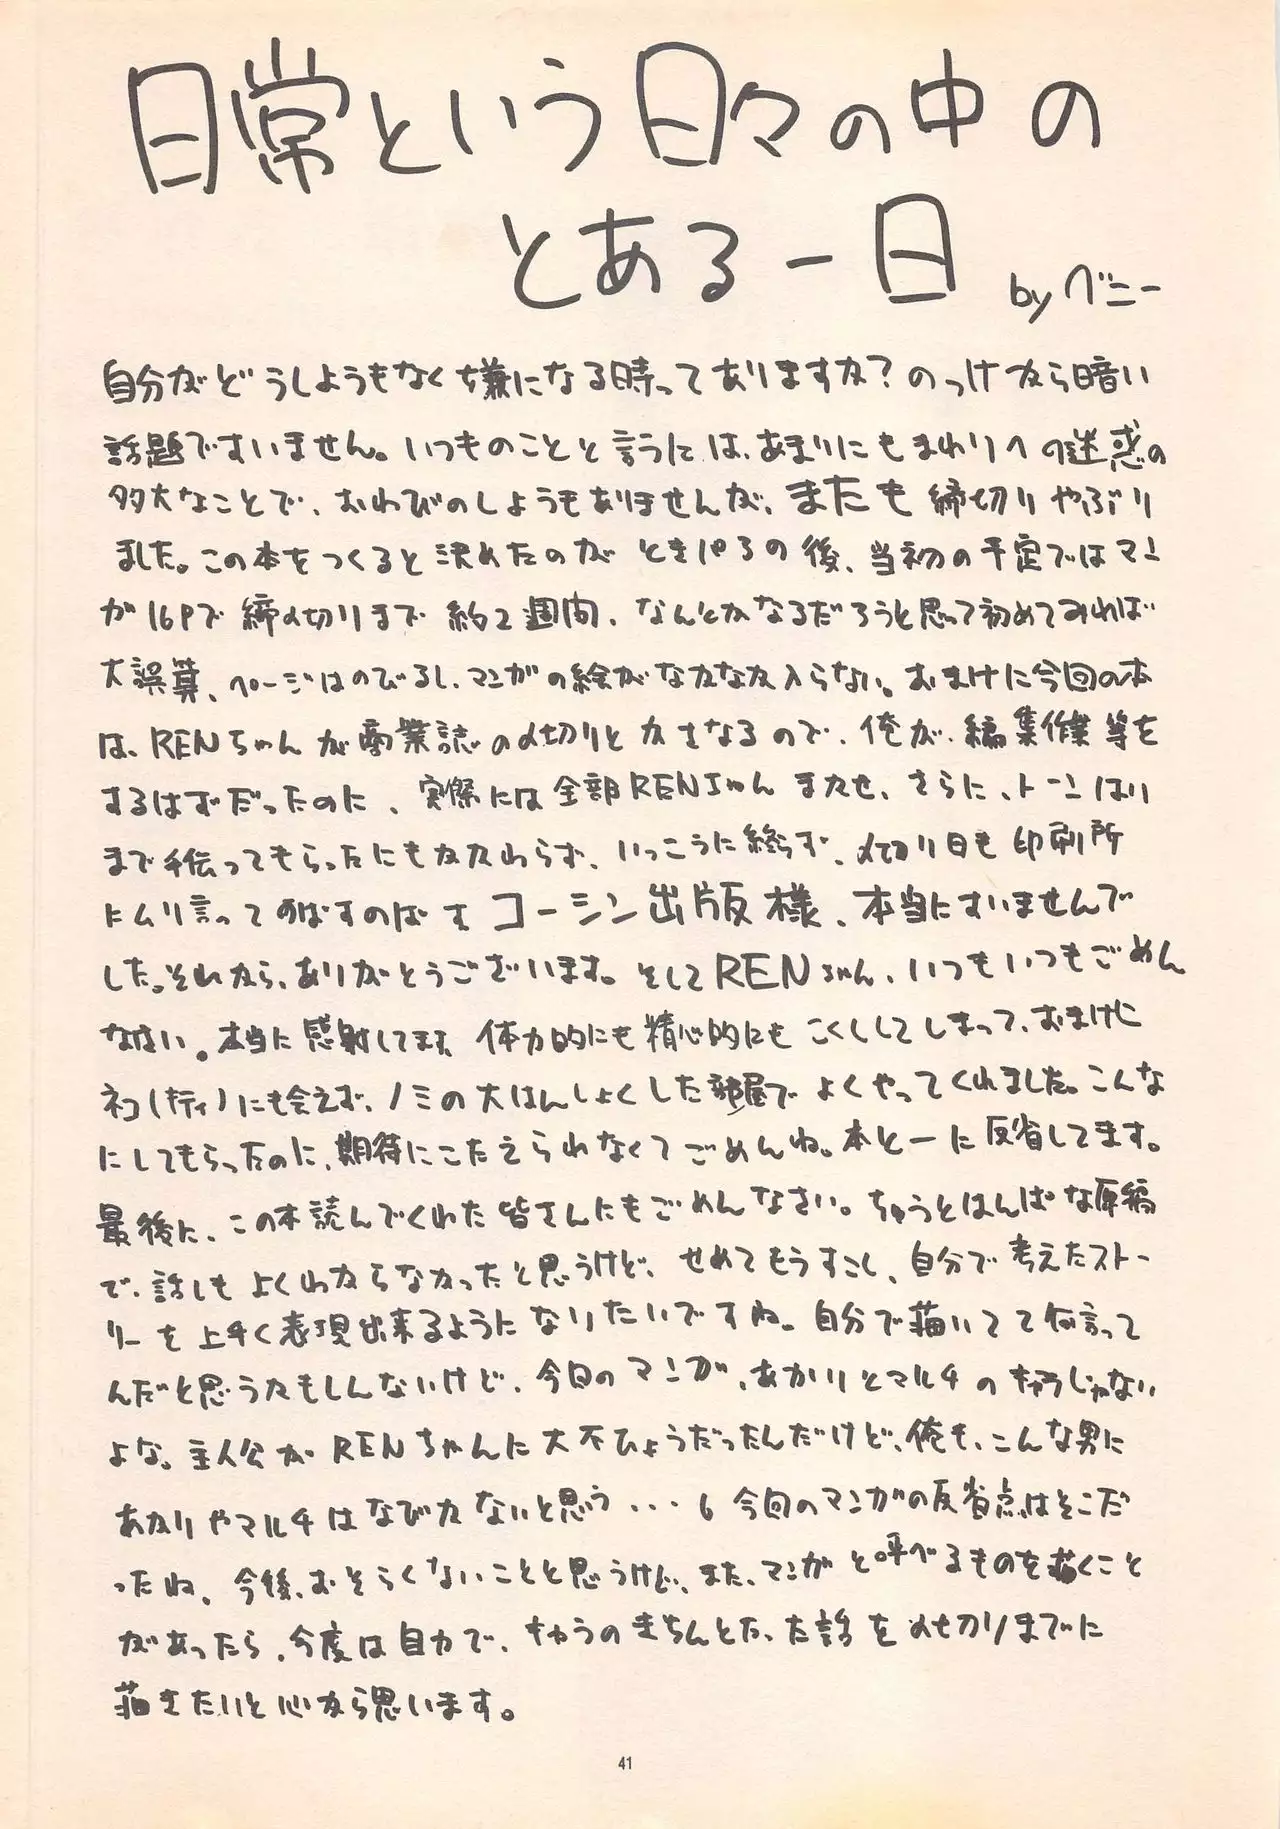 日常という日々の中の
とある一日 by ベニー
自分がどうしようもなく嫌になる時ってありますか？のっけから暗い
話題ですいません。いつものことと言うには、あまりにもまわりへの迷惑の
多大なことで、おわびのしようもありませんが、またも締切りやぶり
ました。この本をつくると決めたのがときパろの後、当初の予定ではマン
が16Pで締め切りまで約2週間、なんとかなるだろうと思って初めてみれば
大誤算、ページはのびるし、マンガの絵がなかなか入らない。おまけに今回の本
は、RENちゃんが商業誌の〆切りとかさなるので、俺が、編集作業等を
するはずだったのに、実際には全部RENちゃんまかせ、さらに、トーンはり
まで手伝ってもらったにもかかわらず、いっこうに終らず、〆切り日も印刷所
にムリ言ってのばすのばす コーシン出版様、本当にすいませんで
した。それから、ありがとうございます。そしてRENちゃん、いつもいつもごめん
なさい。本当に感射してます 体力的にも精心的にもこくししてしまって、おまけに
ネコ(ティ)にも会えず、ノミの大はんしょくした部屋でよくやってくれました。こんな
にしてもらったのに、期待にこたえられなくてごめんね。本と一に反省してます。
最後に、この本読んでくれた皆さんにもごめんなさい。ちゅうとはんぱな原稿
で、話しもよくわからなかったと思うけど、せめてもうすこし、自分で考えたストー
リーを上手く表現出来るようになりたいですね。自分で描いてて何言って
んだと思うかもしんないけど、今日のマンガ、あかりとマルチのキャラじゃない
よな。主人公がRENちゃんに大不ひょうだったんだけど、俺も、こんな男に
あかりやマルチはなびかないと思う・・・。今回のマンガの反省点はそこだ
ったね。今後、おそらくないことと思うけど、また、マンガと呼べるものを描くこと
があったら、今度は自力で、キャラのきちんとたった話を〆切りまでに
描きたいと心から思います。
41